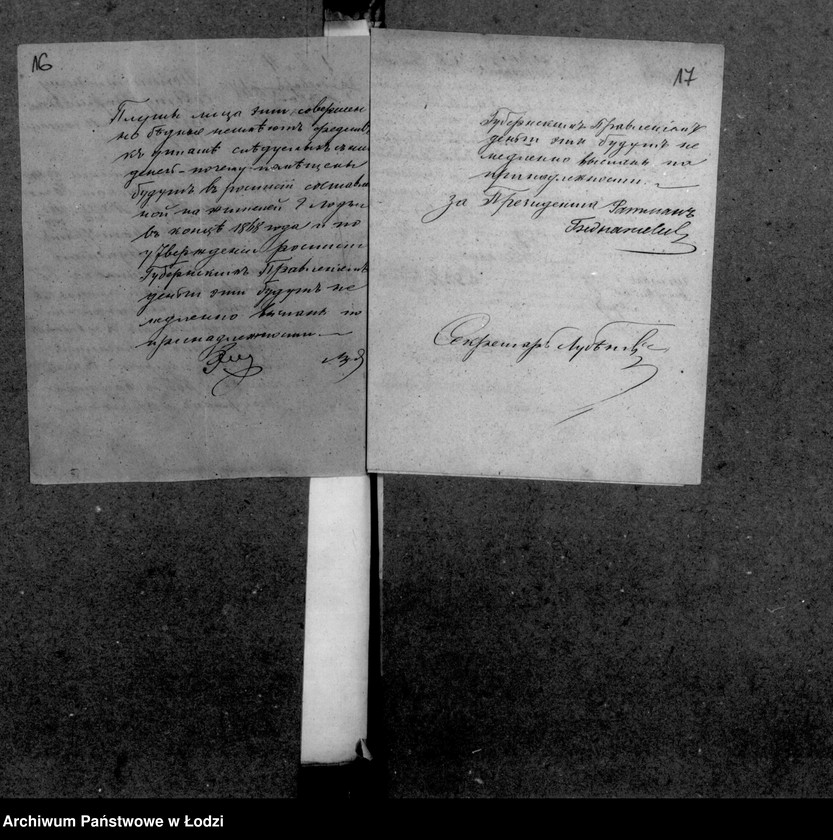 16
Плуцъ лица эти совершен
но бѣдные неимѣютъ средствъ
къ уплатѣ слѣдуемыхъ съ нихъ
денегъ почему помѣщены
будутъ въ росписи составлен
ной на жителей г. Лодзи
въ концѣ 1868 года и по
утвержденіи росписи
Губернскимъ Правленіемъ
деньги эти будутъ не
медленно высланы по
принадлежности.
17
Губернскимъ Правленіемъ
деньги эти будутъ не
медленно высланы по
принадлежности.
За Президента Ратманъ
Секретарь
Archiwum Państwowe w Łodzi